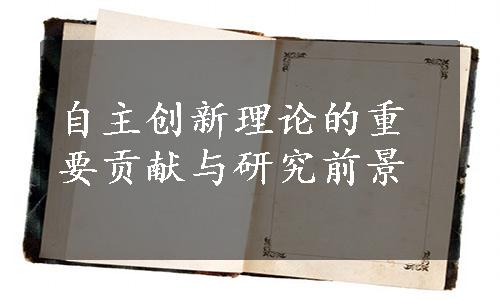 自主创新理论的重
要贡献与研究前景